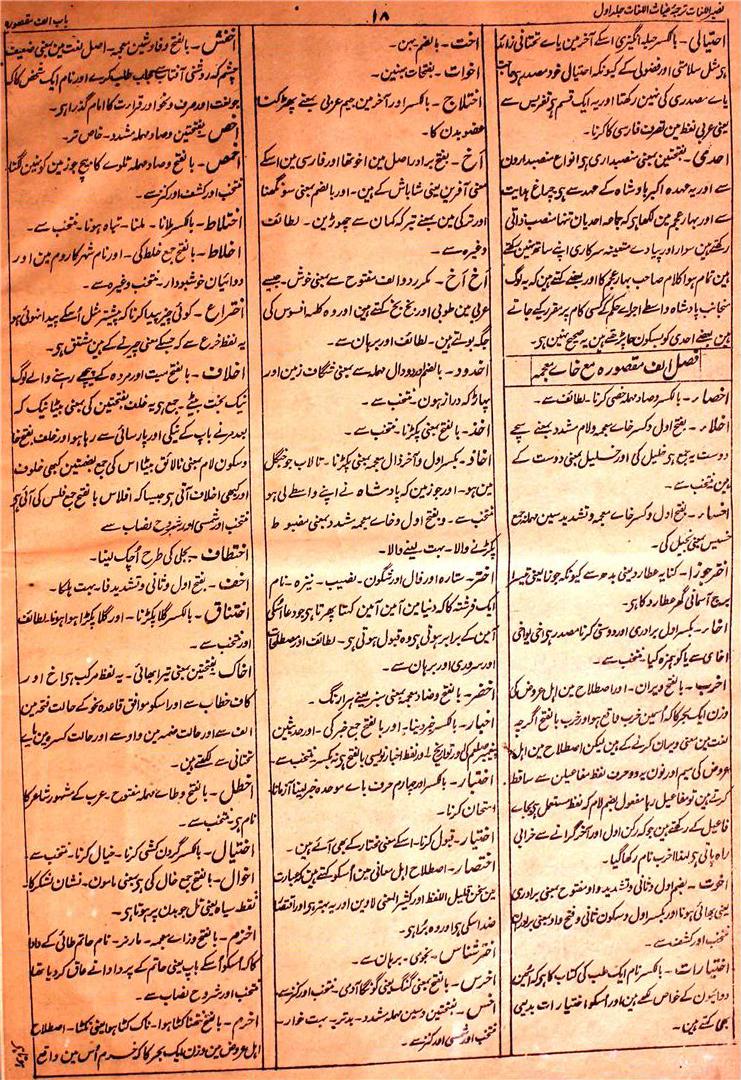 نصیر اللغات ترجمۂ غیاث اللغات جلد اول
۱۸
باب الف مقصورہ
احتیالی۔ بالکسر حیلہ انگیزی اسکے آخر مین یاے تحتانی زائد
ہی مثل سلامتی اور فضولی کے کیونکہ احتیالی خود مصدر ہی حاجت
یاے مصدری کی نہین رکھتا اور یہ ایک قسم ہی تفریس سے
یعنی عربی لفظ مین تصرف فارسی کا کرنا۔
احدی۔ بفتحتین بمعنی منصبداری ہی انواع منصبدارون
سے اور یہ عہدہ اکبر بادشاہ کے عہد سے ہی چراغ ہدایت
سے اور بہار عجم مین لکھا ہی کہ جماعہ احدیان تنہا منصب ذاتی
رکھتے ہین سوار اور پیادے متعینہ سرکاری اپنے ساتھ نہین رکھتے
ہین تمام ہوا کلام صاحب بہار عجم کا اور بعضے کہتے ہین کہ یہ لوگ
منجانب بادشاہ واسطے اجراے حکم کے کسی کام پر مقرر کیے جاتے
ہین بعضے احدی کو بسکون حا پڑھتے ہین یہ صحیح نہین ہی۔
فصل الف مقصورہ مع خاے معجمہ
اخصار۔ بالکسر و صاد مہملہ خصی کرنا۔ لطائف سے۔
اخلاء۔ بفتح اول و کسر خاے معجمہ و لام مشدد بمعنے سچے
دوست یہ جمع ہی خلیل کی اور خلیل بمعنی دوست کے
ہین منتخب سے۔
اخساء۔ بفتح اول و کسر خاے معجمہ و تشدید سین مہملہ جمع
خسیس بمعنی بخیل کی۔
اختر جوزا۔ کنایہ عطارد یعنی بدھ سے کیونکہ جوزا یعنی تیسرا
برج آسمانی گھر عطارد کا ہی۔
اخاء۔ بکسر اول برادری اور دوستی کرنا مصدر ہی اخی یواخی
اخای سے یا کو ہمزہ کیا۔ منتخب سے۔
اخرب۔ بالفتح ویران۔ اور اصطلاح مین اہل عروض کی
وزن ایک بحر کا کہ اُسمین خرب واقع ہو اور خرب بالفتح اگرچہ
لغت مین بمعنی ویران کرنے کے ہین لیکن اصطلاح مین اہل
عروض کی میم اور نون یہ دو حرف لفظ مفاعیلن سے ساقط
کرتے ہین تو مفاعیل رہا مفعول بضم لام کہ لفظ مستعمل ہی بجاے
فاعیل کے رکھتے ہین چونکہ رکن اول اور آخر گرانے سے خرابی
راہ پاتی ہی لہذا اخرب نام رکھا گیا۔
اخوت۔ بضم اول و ثانی و تشدید واو مفتوح بمعنی برادری
یعنی بھائی ہونا اور بکسر اول و سکون ثانی و فتح واو بمعنی برادران
منتخب اور کشف سے۔
اختیارات۔ بالکسر نام ایک طب کی کتاب کا ہی کہ اُسمین
دوائیون کے خاص لکھے ہین اور اسکو اختیارات بدیعی
بھی کہتے ہین۔
اخت۔ بالضم بہن۔
اخوات۔ بفتحات بہنین۔
اختلاج۔ بالکسر اور آخر مین جیم عربی بمعنے پھڑکنا
عضو بدن کا۔
اَخ۔ بفتح برادر اصل مین اخو تھا اور فارسی مین اسکے
معنی آفرین یعنی شاباش کے ہین۔ اور بالضم بمعنی سونگھنا
اور ترکی مین بمعنے تیر کہ کمان سے چھوڑین۔ لطائف
وغیرہ سے۔
اَخ اَخ۔ مکرر دو الف مفتوح سے بمعنی خوش۔ جیسے
عربی مین طوبی اور بخ بخ کہتے ہین اور وہ کلمہ افسوس کی
جگہ بولتے ہین۔ لطائف اور برہان سے۔
اخدود۔ بالضم اور دو دال مہملہ سے بمعنی شگاف زمین اور
پہاڑ کہ دراز ہون۔ منتخب سے۔
اخذ۔ بالفتح بمعنی پکڑنا۔ منتخب سے۔
اخاذ۔ بکسر اول و آخر ذال معجمہ بمعنی پکڑنا۔ تالاب جو جنگل
مین ہو۔ اور جو زمین کہ بادشاہ نے اپنے واسطے لی ہو
منتخب سے۔ و بفتح اول و خاے معجمہ مشدد بمعنی مضبوط
پکڑنے والا۔ بہت لینے والا۔
اختر۔ ستارہ اور فال اور شگون۔ نصیب۔ نیزہ۔ نام
ایک فرشتہ کا کہ دنیا مین آمین آمین کہتا پھرتا ہی جو دعا اُسکی
آمین کے برابر ہوتی ہی وہ قبول ہوتی ہی۔ لطائف اور مصطلحات
اور سروری اور برہان سے۔
اخضر۔ بالفتح و ضاد معجمہ بمعنی سبز یعنے ہرا رنگ۔
اخبار۔ بالکسر خبر دینا۔ اور بالفتح جمع خبر کی۔ اور حدیثین
پیغمبر صلعم کی اور تواریخ۔ اور لفظ اخبار نویسی بالفتح ہی نہ بکسر منتخب سے۔
اختبار۔ بالکسر اور چہارم حرف باے موحدہ خبر لینا آزمانا۔
امتحان کرنا۔
اختیار۔ قبول کرنا۔ اسکے معنی مختار کے بھی آئے ہین۔
اختصار۔ اصطلاح اہل معانی مین اُسکو کہتے ہین کہ عبارت
مین سخن قلیل اللفظ اور کثیر المعنی لاوین اور یہ بہتر ہی اور اقتصار
ضد اسکی ہی اور وہ بُرا ہی۔
اختر شناس۔ نجومی۔ برہان سے۔
اخرس۔ بالفتح بمعنی گنگ یعنی گونگا آدمی۔ منتخب اور کنز سے۔
اخس۔ بفتحتین و سین مہملہ مشدد۔ بدتر یہ سبت خوار۔
منتخب اور شمسی اور کنز سے۔
اخفش۔ بالفتح و فا و شین معجمہ۔ اصل لغت مین بمعنی ضعیف
چشم کہ روشنی آفتاب سے حجاب طلب کرے اور نام ایک شخص کا کہ
جو لغت اور صرف و نحو اور قرات کا امام گذرا ہی۔
اخص۔ بفتحتین و صاد مہملہ مشدد۔ خاص تر۔
اخمص۔ بالفتح و صاد مہملہ تلوے کا بیچ جو زمین کو نہین لگتا
منتخب اور کشف اور کنز سے۔
اختلاط۔ بالکسر ملانا۔ ملنا۔ تباہ ہونا۔ منتخب سے۔
اخلاط۔ بالفتح جمع خلط کی۔ اور نام شہر کا روم مین اور
دوائیان خوشبودار۔ منتخب وغیرہ سے۔
اختراع۔ کوئی چیز پیدا کرنا کہ پیشتر مثل اُسکے پیدا نہوئی ہو
یہ لفظ خرع سے کہ جسکے معنی چرنے کے ہین مشتق ہی۔
اخلاف۔ بالفتح میت اور مردہ کے پیچھے رہنے والے لوگ
نیک بخت بیٹے۔ جمع ہی یہ خلف بفتحتین کی بمعنی بیٹا نیک کہ
بعد مرنے باپ کے نیکی اور پارسائی سے رہا ہو اور خلف بفتح خا
و سکون لام بمعنی نالائق بیٹا اس کی جمع بضمتین کبھی خلوف
اور کبھی اخلاف آتی ہی جیسا کہ افلاس بالفتح جمع فلس کی آئی ہی
منتخب اور شمسی اور شروح نصاب سے
اختطاف۔ بجلی کی طرح اُچک لینا۔
اخف۔ بفتح اول و ثانی و تشدید فا۔ بہت ہلکا۔
اختناق۔ بالکسر گلا پکڑنا۔ اور گلا پکڑا ہوا ہونا۔ لطائف
اور منتخب سے۔
اخاک بفتحتین بمعنی تیرا بھائی۔ یہ لفظ مرکب ہی اخ اور
کاف خطاب سے اور اسکو موافق قاعدہ نحو کے حالت فتحہ مین
الف سے اور حالت ضمہ مین واو سے اور حالت کسرہ مین یاے
تحتانی سے لکھتے ہین۔
اخطل۔ بالفتح و طاے مہملہ مفتوح۔ عرب کے مشہور شاعر کا
نام ہی منتخب سے۔
اختیال۔ بالکسر گردن کشی کرنا۔ خیال کرنا۔ منتخب سے۔
اخوال۔ بالفتح جمع خال کی ہی بمعنی مامون۔ نشان لشکر کا۔
نقطہ سیاہ یعنی تل جو بدن پر ہوتا ہی۔
اخزم۔ بالفتح و زاے معجمہ۔ مار نر۔ نام حاتم طائی کے دادا
کا کہ اُسکو اُسکے باپ یعنی حاتم کے پردادا نے عاق کر دیا تھا
منتخب اور شروح نصاب سے۔
اخرم۔ بالفتح نتھنا کٹا ہوا۔ ناک کٹا ہوا یعنی نکٹا۔ اصطلاح
اہل عروض مین وزن ایک بحر کا کہ خرم اُس مین واقع